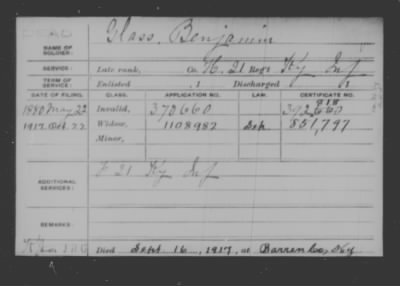 DEAD
Glass, Benjamin
NAME OF SOLDIER:
SERVICE: Late rank, Co. H, 21 Reg't Ky Inf
TERM OF SERVICE: Enlisted , 1 Discharged , 1
DATE OF FILING. CLASS. APPLICATION NO. LAW. CERTIFICATE NO.
1880 May 22 Invalid, 370660
1917 Oct. 22 Widow, 1108982 851,797
Minor,
ADDITIONAL SERVICES: F 21 Ky Inf
REMARKS:
Died Sept 16, 1917, at Barren Co, Ky